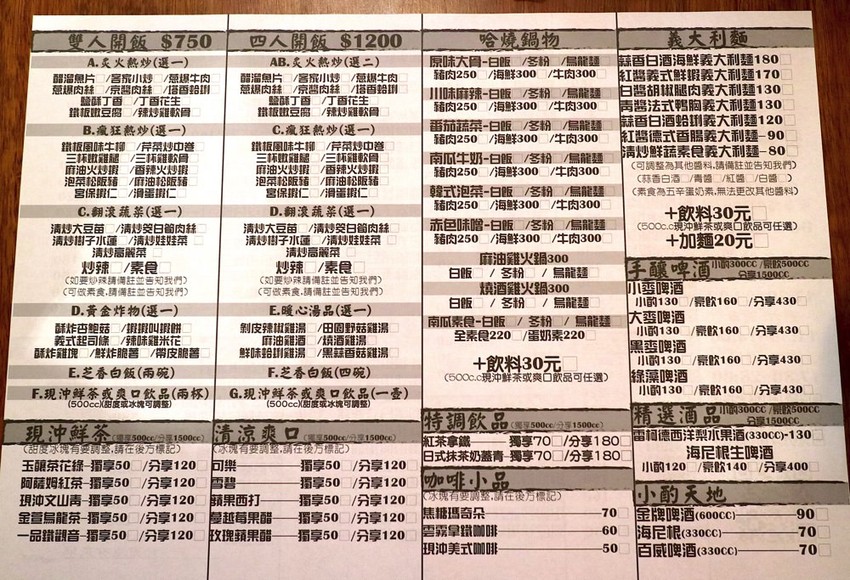 雙人開飯 $750
A.炙火熱炒(選一)
醋溜魚片□/客家小炒□/蔥爆牛肉□
蔥爆肉絲□/京醬肉絲□/塔香蛤蜊□
鹽酥丁香□/丁香花生□
鐵板嫩豆腐□/辣炒雞軟骨□
B.瘋狂熱炒(選一)
鐵板風味牛柳□/芹菜炒中卷□
三杯嫩雞腿□/三杯雞軟骨□
麻油火炒蝦□/香蒜火炒蝦□
泡菜松阪豬□/麻油松阪豬□
宮保蝦仁□/滑蛋蝦仁□
C.翻滾蔬菜(選一)
清炒大豆苗□/清炒筊白筍肉絲□
清炒樹子水蓮□/清炒娃娃菜□
清炒高麗菜□
炒辣□/素食□
(如要炒辣請備註並告知我們)
(可做素食,請備註並告知我們)
D.黃金炸物(選一)
酥炸杏鮑菇□/蝦蝦叫蝦餅□
義式起司條□/辣味雞米花□
酥炸雞塊□/鮮炸脆薯□/帶皮脆薯□
E.芝香白飯(兩碗)
F.現沖鮮茶或爽口飲品(兩杯)
(500cc)(甜度或冰塊可調整)
四人開飯 $1200
AB.炙火熱炒(選二)
醋溜魚片□/客家小炒□/蔥爆牛肉□
蔥爆肉絲□/京醬肉絲□/塔香蛤蜊□
鹽酥丁香□/丁香花生□
鐵板嫩豆腐□/辣炒雞軟骨□
C.瘋狂熱炒(選一)
鐵板風味牛柳□/芹菜炒中卷□
三杯嫩雞腿□/三杯雞軟骨□
麻油火炒蝦□/香蒜火炒蝦□
泡菜松阪豬□/麻油松阪豬□
宮保蝦仁□/滑蛋蝦仁□
D.翻滾蔬菜(選一)
清炒大豆苗□/清炒筊白筍肉絲□
清炒樹子水蓮□/清炒娃娃菜□
清炒高麗菜□
炒辣□/素食□
(如要炒辣請備註並告知我們)
(可做素食,請備註並告知我們)
E.暖心湯品(選一)
剝皮辣椒雞湯□/田園野菇雞湯□
麻油雞酒□/燒酒雞湯□
鮮味蛤蜊雞湯□/黑蒜香菇雞湯□
F.芝香白飯(四碗)
G.現沖鮮茶或爽口飲品(一壺)
(500cc)(甜度或冰塊可調整)
哈燒鍋物
原味大骨-白飯□/冬粉□/烏龍麵□
豬肉250□/海鮮300□/牛肉300□
川味麻辣-白飯□/冬粉□/烏龍麵□
豬肉250□/海鮮300□/牛肉300□
番茄蔬菜-白飯□/冬粉□/烏龍麵□
豬肉250□/海鮮300□/牛肉300□
南瓜牛奶-白飯□/冬粉□/烏龍麵□
豬肉250□/海鮮300□/牛肉300□
韓式泡菜-白飯□/冬粉□/烏龍麵□
豬肉250□/海鮮300□/牛肉300□
赤色味噌-白飯□/冬粉□/烏龍麵□
豬肉250□/海鮮300□/牛肉300□
麻油雞火鍋300
白飯□/冬粉□/烏龍麵□
燒酒雞火鍋300
白飯□/冬粉□/烏龍麵□
南瓜素食-白飯□/冬粉□/烏龍麵□
全素食220□/蛋奶素220□
+飲料30元□
(500c.c現沖鮮茶或爽口飲品可任選)
義大利麵
蒜香白酒海鮮義大利麵180□
紅醬義式鮮蝦義大利麵170□
白醬胡椒腿肉義大利麵130□
青醬法式鴨胸義大利麵130□
蒜香白酒蛤蜊義大利麵120□
紅醬德式香腸義大利麵-90□
清炒鮮蔬素食義大利麵-80□
(可調整為其他醬料,請備註並告知我們)
(蒜香白酒□/青醬□/紅醬□/白醬□)
(素食為五辛蛋奶素,無法更改其他醬料)
+飲料30元□
(500c.c現沖鮮茶或爽口飲品可任選)
+加麵20元□
手釀啤酒 小酌300CC/豪飲500CC
分享1500CC
小麥啤酒
小酌130□/豪飲160□/分享430□
大麥啤酒
小酌130□/豪飲160□/分享430□
黑麥啤酒
小酌130□/豪飲160□/分享430□
綠藻啤酒
小酌130□/豪飲160□/分享430□
精選酒品 小酌300CC/豪飲500CC
分享1500CC
雷柯德西洋梨水果酒(330CC)-130□
海尼根生啤酒
小酌120□/豪飲140□/分享400□
小酌天地
金牌啤酒(600CC)90□
海尼根(330CC)70□
百威啤酒(330CC)70□
現沖鮮茶(獨享500cc/分享1500cc)
(甜度冰塊有要調整,請在後方標記)
玉韻茶花綠-獨享50□/分享120□
阿薩姆紅茶-獨享50□/分享120□
現沖文山青-獨享50□/分享120□
金萱烏龍茶-獨享50□/分享120□
一品鐵觀音-獨享50□/分享120□
清涼爽口(獨享500cc/分享1500cc)
(冰塊有要調整,請在後方標記)
可樂獨享50□/分享120□
雪碧獨享50□/分享120□
蘋果西打獨享50□/分享120□
蔓越莓果醋獨享50□/分享120□
玫瑰蘋果醋獨享50□/分享120□
特調飲品(獨享500cc/分享1500cc)
紅茶拿鐵獨享70□/分享180□
日式抹茶奶蓋青-獨享70□/分享180□
咖啡小品
(冰塊有要調整,請在後方標記)
焦糖瑪奇朵70□
雲霧拿鐵咖啡60□
現沖美式咖啡50□